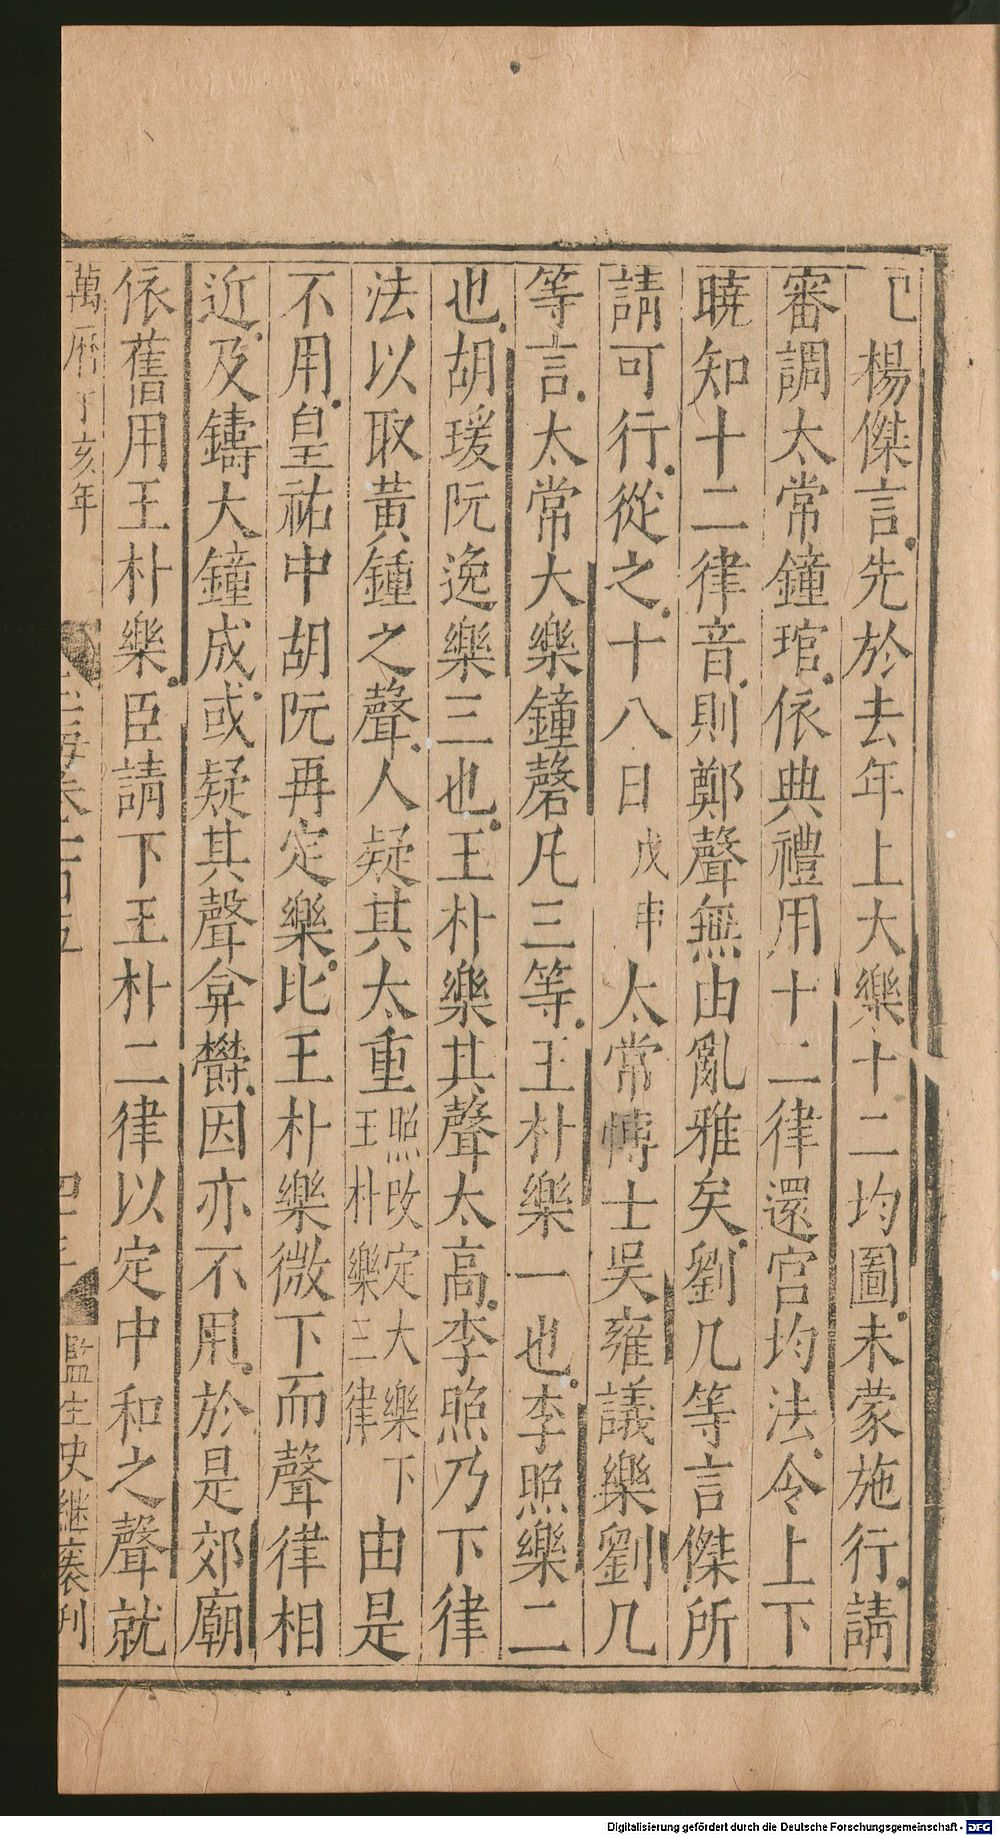 巳楊傑言先於去年上大樂十二均圖未蒙施行請
審調太常鐘琯依典禮用十二律還宫均法令上下
曉知十二律音則鄭聲無由亂雅矣劉几等言傑所
請可行從之十八日戊申太常愽士吳雍議樂劉几
等言太常大樂鐘磬凡三等王朴樂一也李照樂二
也胡瑗阮逸樂三也王朴樂其聲太高李照乃下律
法以取黄鍾之聲人疑其太重照改定大樂下王朴樂三律由是
不用皇祐中胡阮再定樂比王朴樂微下而聲律相
近及鑄大鐘成或疑其聲弇欎因亦不用於是郊廟
依舊用王朴樂臣請下王朴二律以定中和之聲就
萬曆丁亥年 玉海卷一百五 監生史繼裘刊
Digitalisierung gefördert durch die Deutsche Forschungsgemeinschaft - DFG